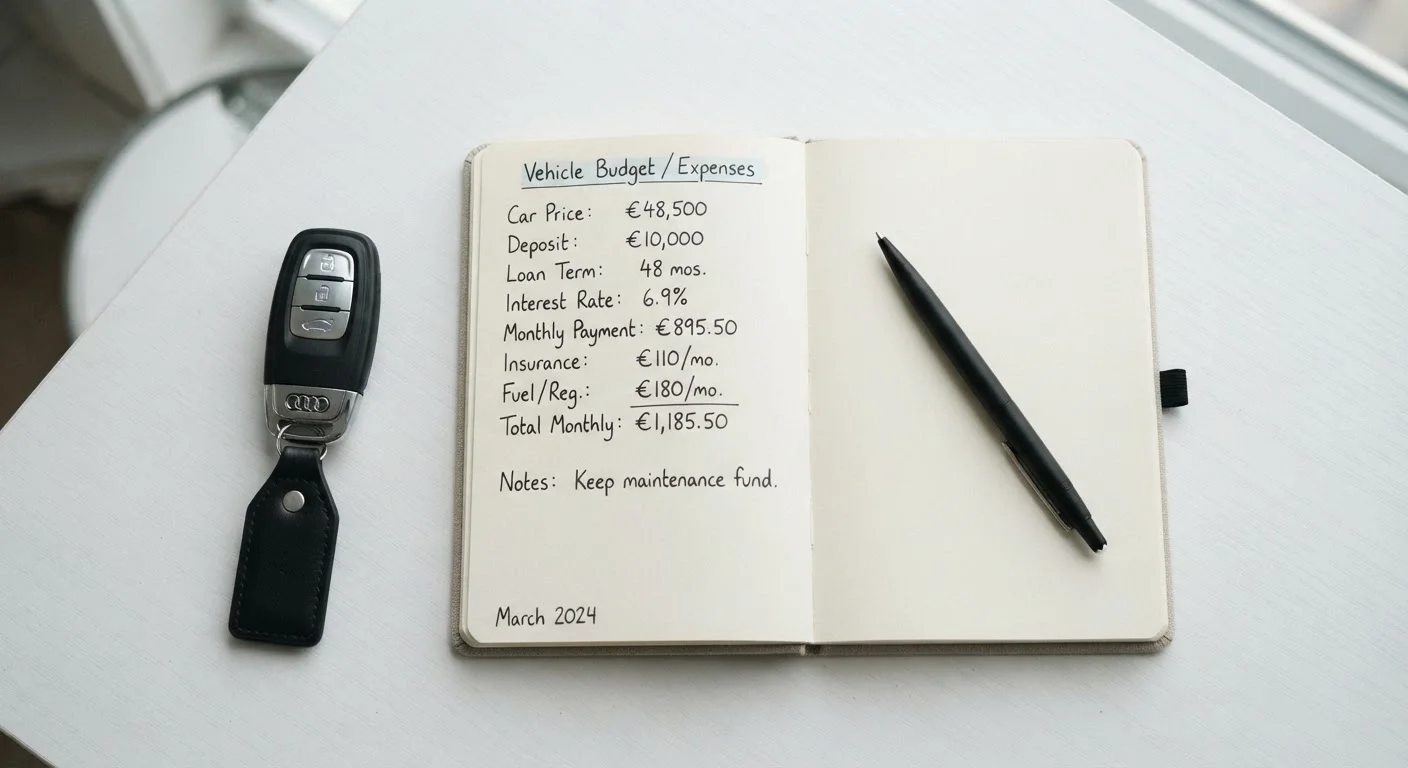 Vehicle Budget / Expenses
Car Price: €48,500
Deposit: €10,000
Loan Term: 48 mos.
Interest Rate: 6.9%
Monthly Payment: €895.50
Insurance: €110/mo.
Fuel/Reg.: €180/mo.
Total Monthly: €1,185.50
Notes: Keep maintenance fund.
March 2024